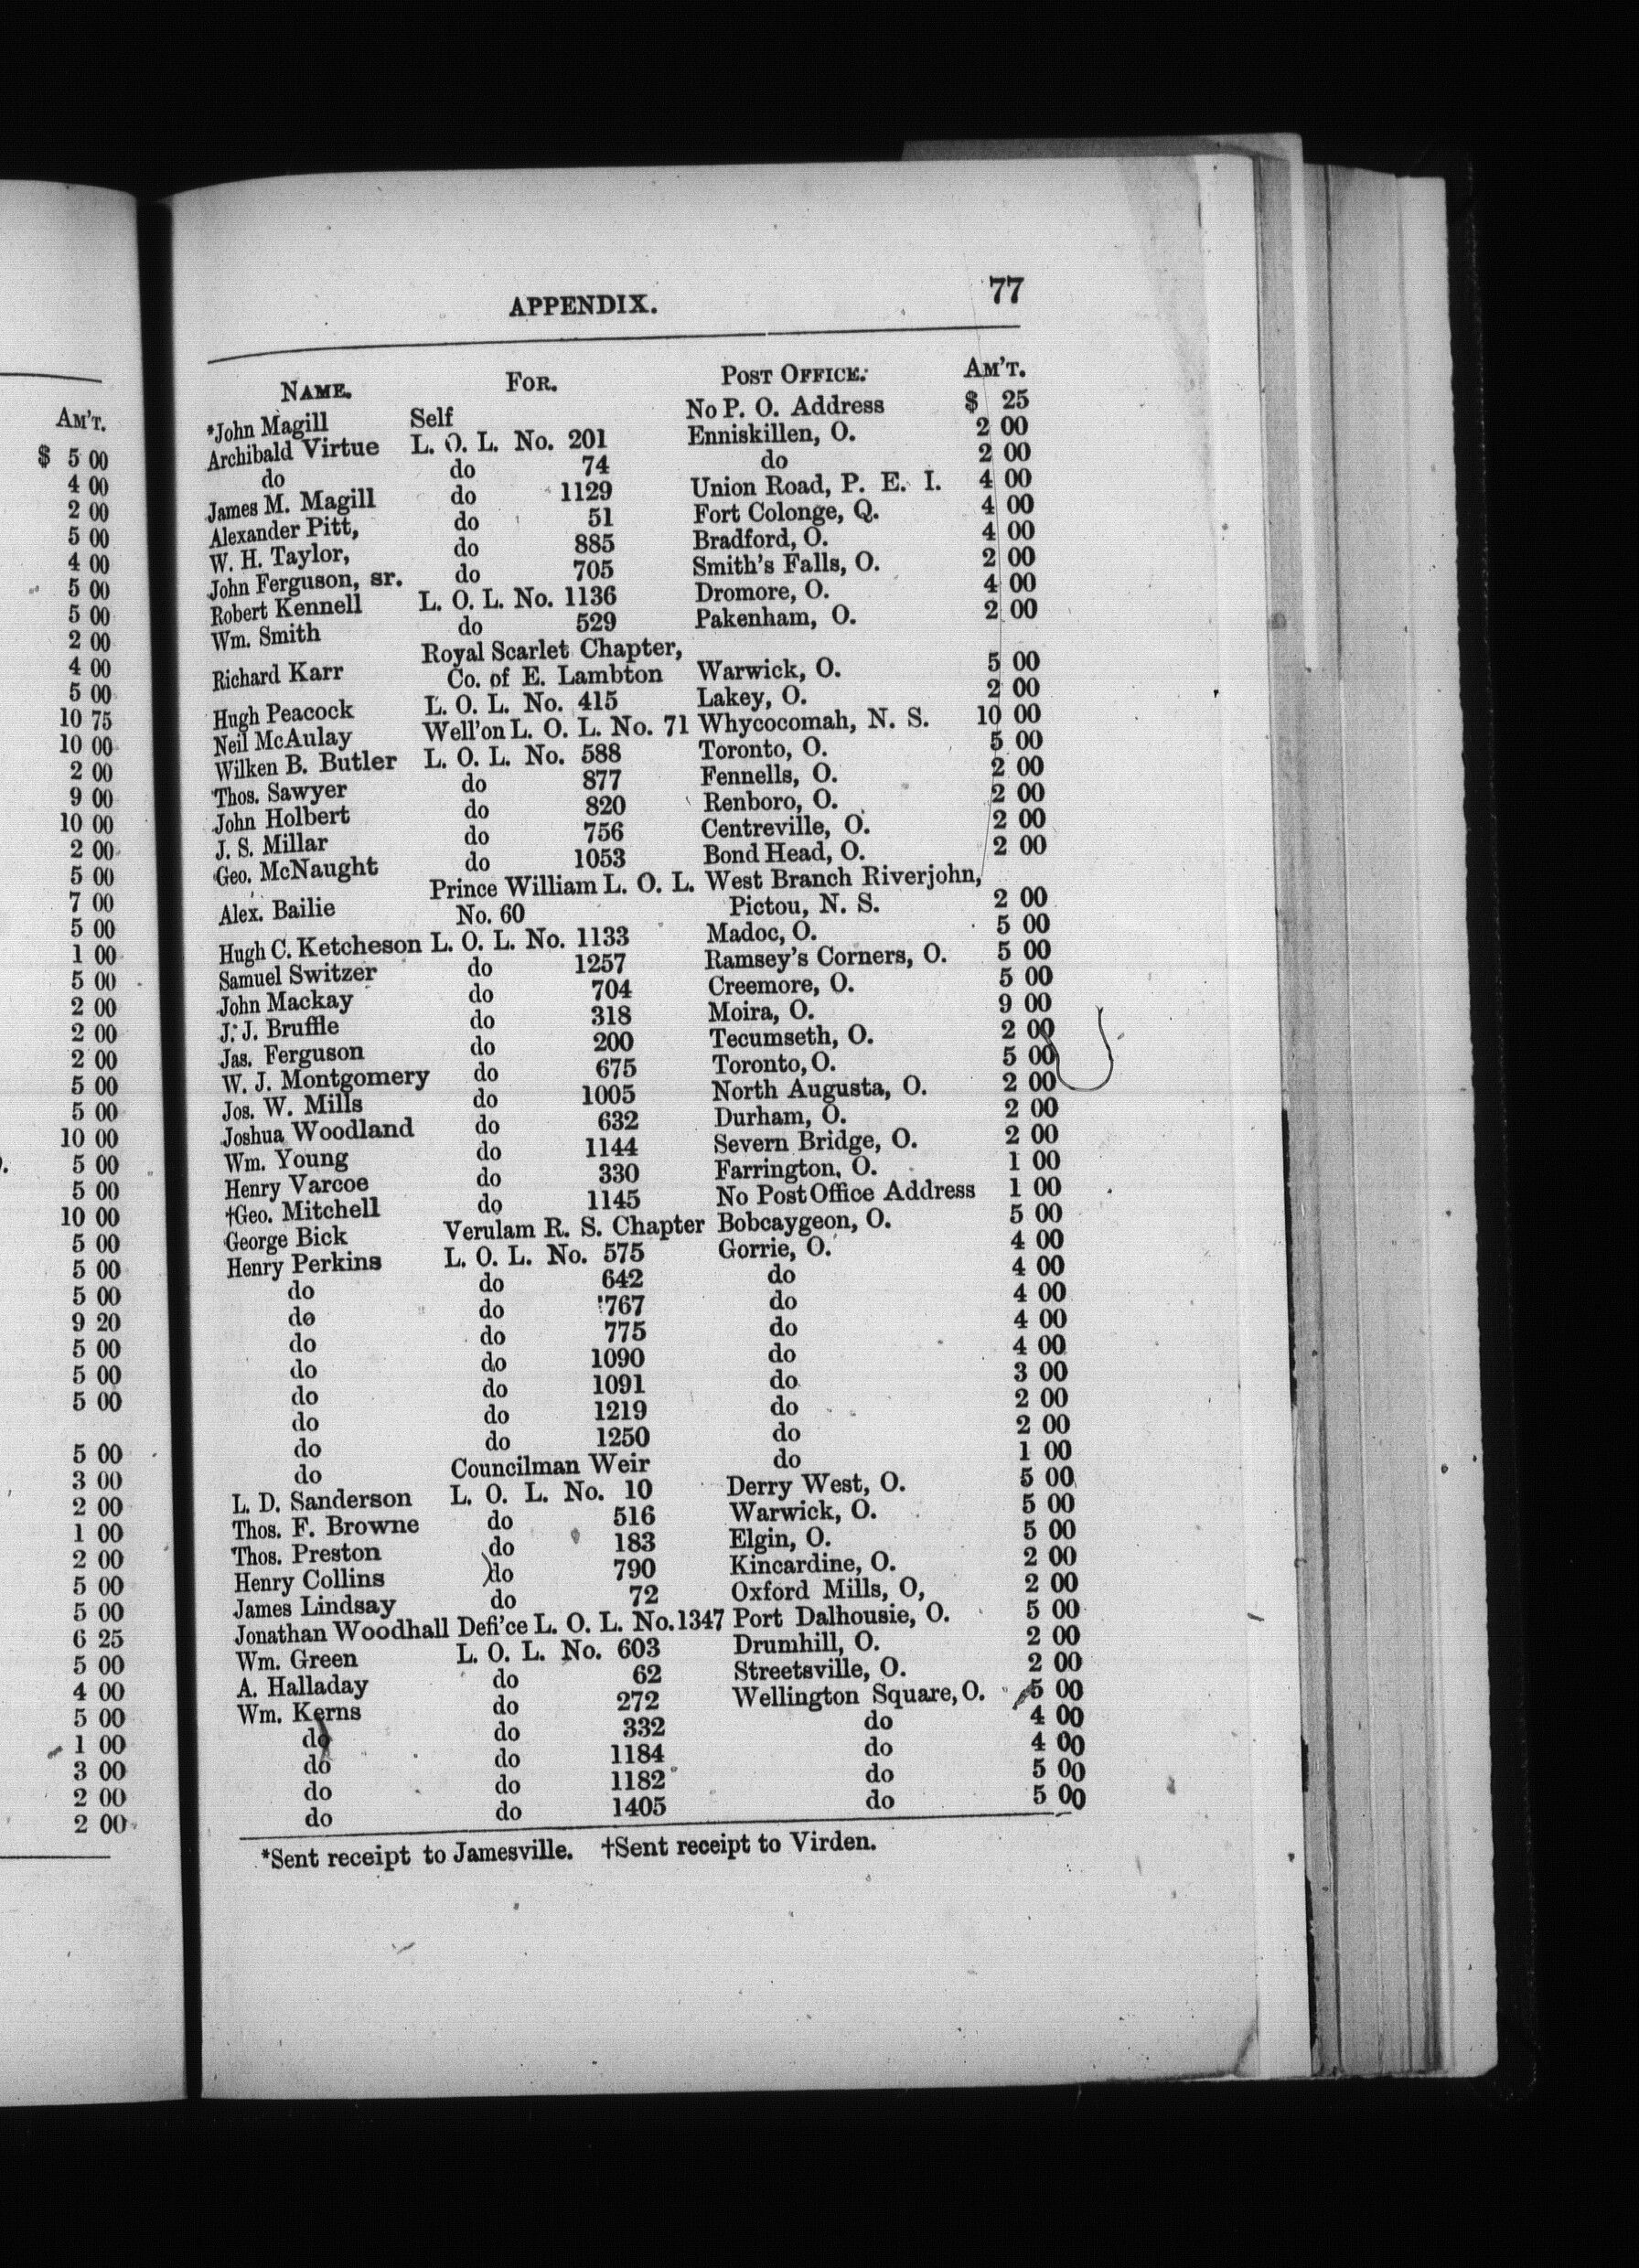 AM'T.
$ 5 00
4 00
2 00
5 00
4 00
5 00
5 00
2 00
4 00
5 00
10 75
10 00
2 00
9 00
10 00
2 00
5 00
7 00
5 00
1 00
5 00
2 00
2 00
2 00
5 00
5 00
10 00
5 00
5 00
10 00
5 00
5 00
5 00
9 20
5 00
5 00
5 00
5 00
3 00
2 00
1 00
2 00
5 00
5 00
6 25
5 00
4 00
5 00
1 00
3 00
2 00
2 00
APPENDIX. 77
NAME. FOR. POST OFFICE. AM'T.
*John Magill Self No P. O. Address $ 25
Archibald Virtue L. O. L. No. 201 Enniskillen, O. 2 00
do do 74 do 2 00
James M. Magill do 1129 Union Road, P. E. I. 4 00
Alexander Pitt, do 51 Fort Colonge, Q. 4 00
W. H. Taylor, do 885 Bradford, O. 4 00
John Ferguson, sr. do 705 Smith's Falls, O. 2 00
Robert Kennell L. O. L. No. 1136 Dromore, O. 4 00
Wm. Smith do 529 Pakenham, O. 2 00
Royal Scarlet Chapter,
Richard Karr Co. of E. Lambton Warwick, O. 5 00
Hugh Peacock L. O. L. No. 415 Lakey, O. 2 00
Neil McAulay Well'on L. O. L. No. 71 Whycocomah, N. S. 10 00
Wilken B. Butler L. O. L. No. 588 Toronto, O. 5 00
Thos. Sawyer do 877 Fennells, O. 2 00
John Holbert do 820 Renboro, O. 2 00
J. S. Millar do 756 Centreville, O. 2 00
Geo. McNaught do 1053 Bond Head, O. 2 00
Prince William L. O. L. West Branch Riverjohn,
Alex. Bailie No. 60 Pictou, N. S. 2 00
Hugh C. Ketcheson L. O. L. No. 1133 Madoc, O. 5 00
Samuel Switzer do 1257 Ramsey's Corners, O. 5 00
John Mackay do 704 Creemore, O. 5 00
J. J. Bruffle do 318 Moira, O. 9 00
Jas. Ferguson do 200 Tecumseth, O. 2 00
W. J. Montgomery do 675 Toronto, O. 5 00
Jos. W. Mills do 1005 North Augusta, O. 2 00
Joshua Woodland do 632 Durham, O. 2 00
Wm. Young do 1144 Severn Bridge, O. 2 00
Henry Varcoe do 330 Farrington, O. 1 00
†Geo. Mitchell do 1145 No Post Office Address 1 00
George Bick Verulam R. S. Chapter Bobcaygeon, O. 5 00
Henry Perkins L. O. L. No. 575 Gorrie, O. 4 00
do do 642 do 4 00
do do 767 do 4 00
do do 775 do 4 00
do do 1090 do 4 00
do do 1091 do 3 00
do do 1219 do 2 00
do do 1250 do 2 00
do Councilman Weir do 1 00
L. D. Sanderson L. O. L. No. 10 Derry West, O. 5 00
Thos. F. Browne do 516 Warwick, O. 5 00
Thos. Preston do 183 Elgin, O. 5 00
Henry Collins do 790 Kincardine, O. 2 00
James Lindsay do 72 Oxford Mills, O, 2 00
Jonathan Woodhall Defi'ce L. O. L. No. 1347 Port Dalhousie, O. 5 00
Wm. Green L. O. L. No. 603 Drumhill, O. 2 00
A. Halladay do 62 Streetsville, O. 2 00
Wm. Kerns do 272 Wellington Square, O. 5 00
do do 332 do 4 00
do do 1184 do 4 00
do do 1182 do 5 00
do do 1405 do 5 00
*Sent receipt to Jamesville. †Sent receipt to Virden.